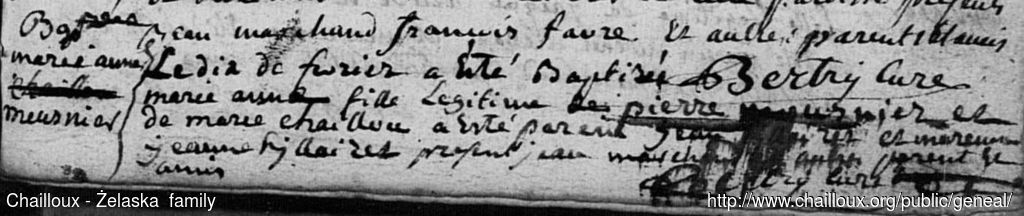 Bapt
marie anne
meusnier
jean marchand françois favre Et autres parent Et amis
Le dix de fevrier a Esté Baptisée Bertry Cure
marie anne fille Legitime de pierre meusnier et
de marie chaillou a Esté parein jean et mareinne
jeanne hillairet present jean marchand autre parent Et
amis Bertry Curé
Chailloux - Żelaska family
http://www.chailloux.org/public/geneal/